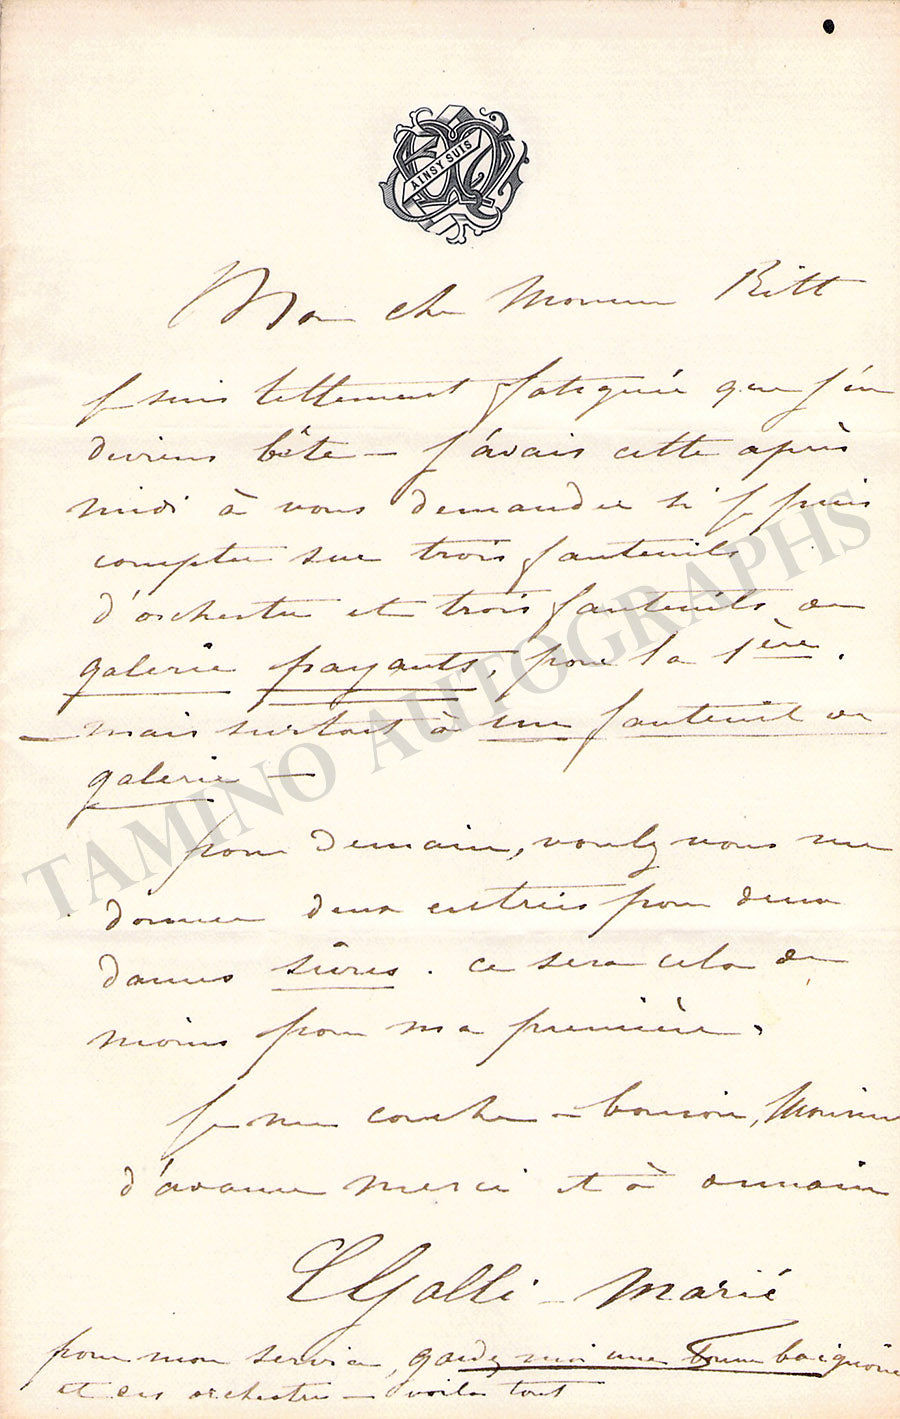 AINSY SUIS
Mon cher Monsieur Ritt
Je suis tellement fatiguée que j'en
deviens bête – J'avais cette après
midi à vous demander si je puis
compter sur trois fauteuils
d'orchestre et trois fauteuils de
galerie payants, pour la 1ère.
– mais surtout à un fauteuil de
galerie –
pour demain, voulez vous me
donner deux entrées pour deux
dames sûres. ce sera cela de
moins pour ma première.
Je me couche – bonsoir, Monsieur
d'avance merci et à demain
CGalli-Marié
pour mon service, gardez moi une bonne baignoire
et des orchestre – voila tout
TAMINO AUTOGRAPHS